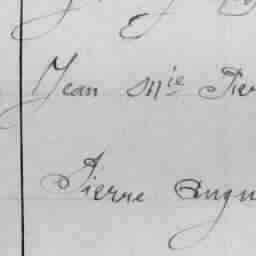 Jean Mie Pier
Pierre Augu